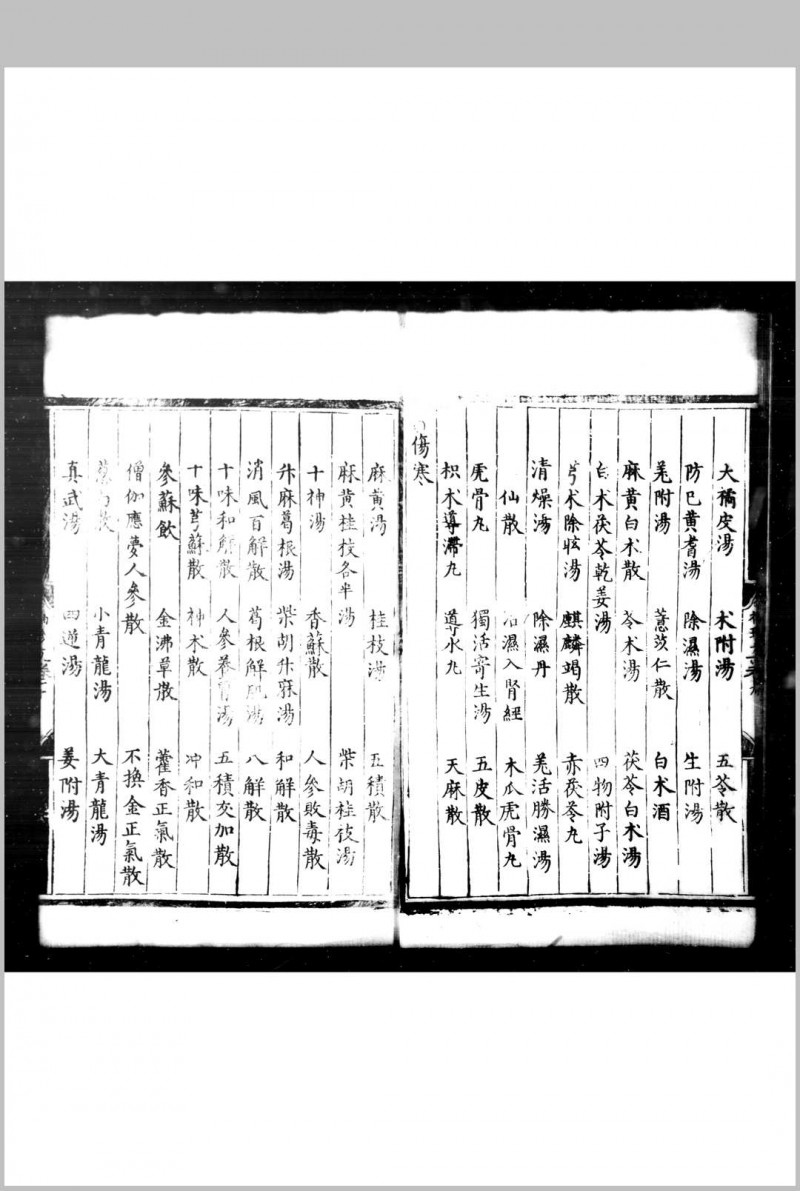 大橘皮湯 朮附湯 五苓散
防巳黃耆湯 除濕湯 生附湯
羗附湯 薏苡仁散 白朮酒
麻黃白朮散 苓朮湯 茯苓白朮湯
白朮茯苓乾姜湯 四物附子湯
芎朮除眩湯 麒麟竭散 赤茯苓丸
清燥湯 除濕丹 羗活勝濕湯
仙散 治濕入腎經 木瓜虎骨丸
虎骨丸 獨活寄生湯 五皮散
枳朮導滯丸 導水丸 天麻散
傷寒
麻黃湯 桂枝湯 五積散
麻黃桂枝各半湯 柴胡桂枝湯
十神湯 香蘇散 人參敗毒散
升麻葛根湯 柴胡升麻湯 和解散
消風百解散 葛根解肌湯 八解散
十味和解散 人參養胃湯 五積交加散
十味芎蘇散 神朮散 冲和散
參蘇飲 金沸草散 藿香正氣散
僧伽應夢人參散 不換金正氣散
小青龍湯 大青龍湯
真武湯 四逆湯 姜附湯